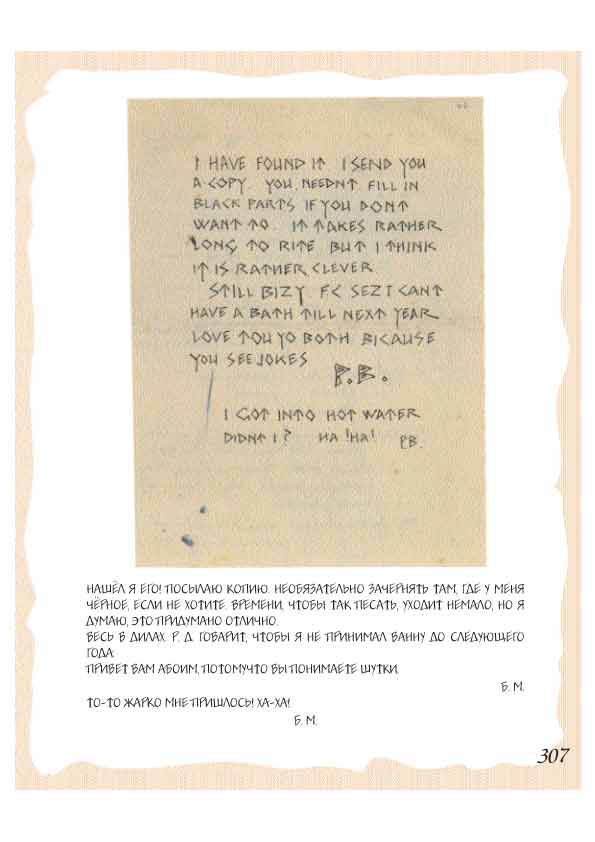 I HAVE FOUND IT I SEND YOU
A COPY. YOU NEEDNT FILL IN
BLACK PARTS IF YOU DONT
WANT TO. IT TAKES RATHER
LONG TO RITE BUT I THINK
IT IS RATHER CLEVER
STILL BIZY FC SEZ I CANT
HAVE A BATH TILL NEXT YEAR
LOVE TOU YO BOTH BICAUSE
YOU SEE JOKES
P.B.
I GOT INTO HOT WATER
DIDNT I? HA! HA!
PB.
НАШЁЛ Я ЕГО! ПОСЫЛАЮ КОПИЮ. НЕОБЯЗАТЕЛЬНО ЗАЧЕРНЯТЬ ТАМ, ГДЕ У МЕНЯ
ЧЁРНОЕ, ЕСЛИ НЕ ХОТИТЕ. ВРЕМЕНИ, ЧТОБЫ ТАК ПЕСАТЬ, УХОДИТ НЕМАЛО, НО Я
ДУМАЮ, ЭТО ПРИДУМАНО ОТЛИЧНО.
ВЕСЬ В ДИЛАХ. Р. Д. ГОВАРИТ, ЧТОБЫ Я НЕ ПРИНИМАЛ ВАННУ ДО СЛЕДУЮЩЕГО
ГОДА.
ПРИВЕТ ВАМ АБОИМ, ПОТОМУЧТО ВЫ ПОНИМАЕТЕ ШУТКИ.
Б. М.
ТО-ТО ЖАРКО МНЕ ПРИШЛОСЬ! ХА-ХА!
Б. М.
307